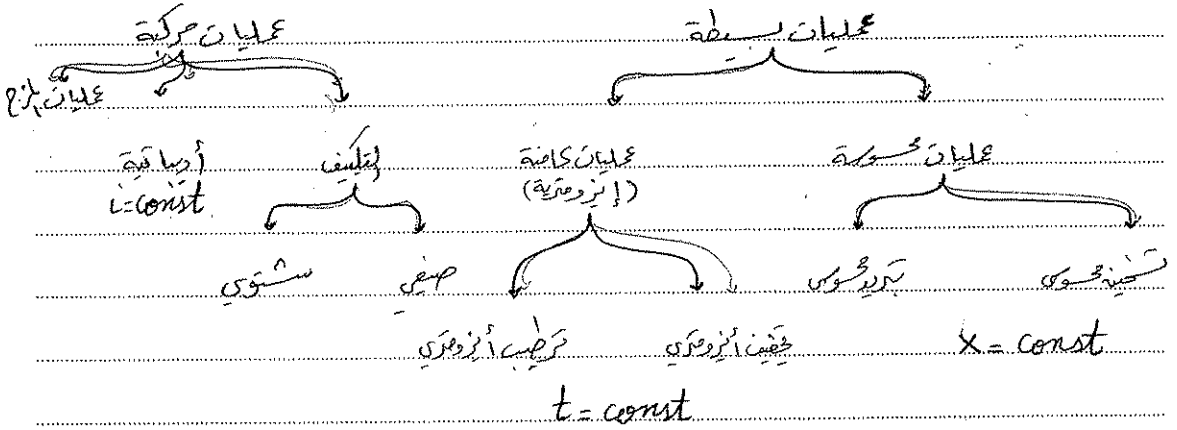 عمليات بسيطة عمليات مركبة
عمليات المزج
عمليات محسوسة عمليات كامنة التكييف أديباتية
(إيزومترية) i=const
تسخين محسوس تبريد محسوس صيفي شتوي
X = const تجفيف أيزومتري ترطيب أيزومتري
t = const